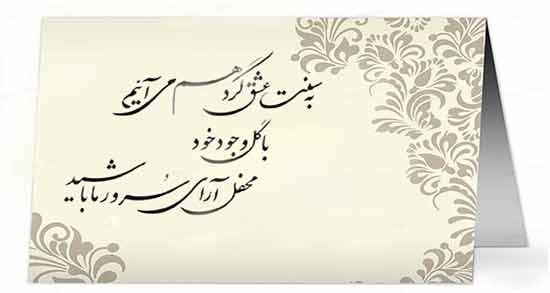 به سنت عشق گرد هم می آئیم
با گل وجود خود
محفل آرای سرور ما باشید